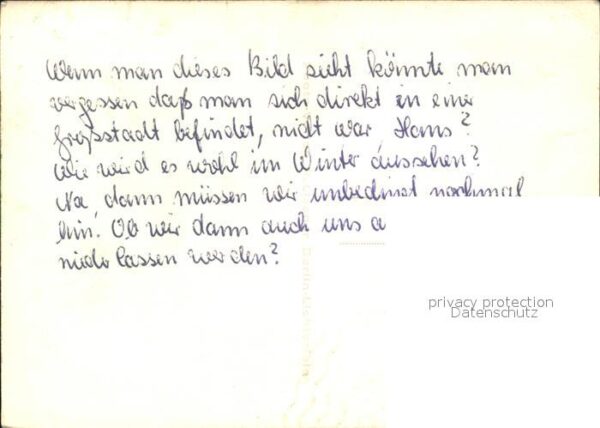 Wenn man dieses Bild sieht könnte man
vergessen daß man sich direkt in einer
Großstadt befindet, nicht war, Hans?
Wie wird es wohl im Winter aussehen?
Na, dann müssen wir unbedingt nochmal
hin. Ob wir dann auch uns a
niederlassen werden?
privacy protection
Datenschutz